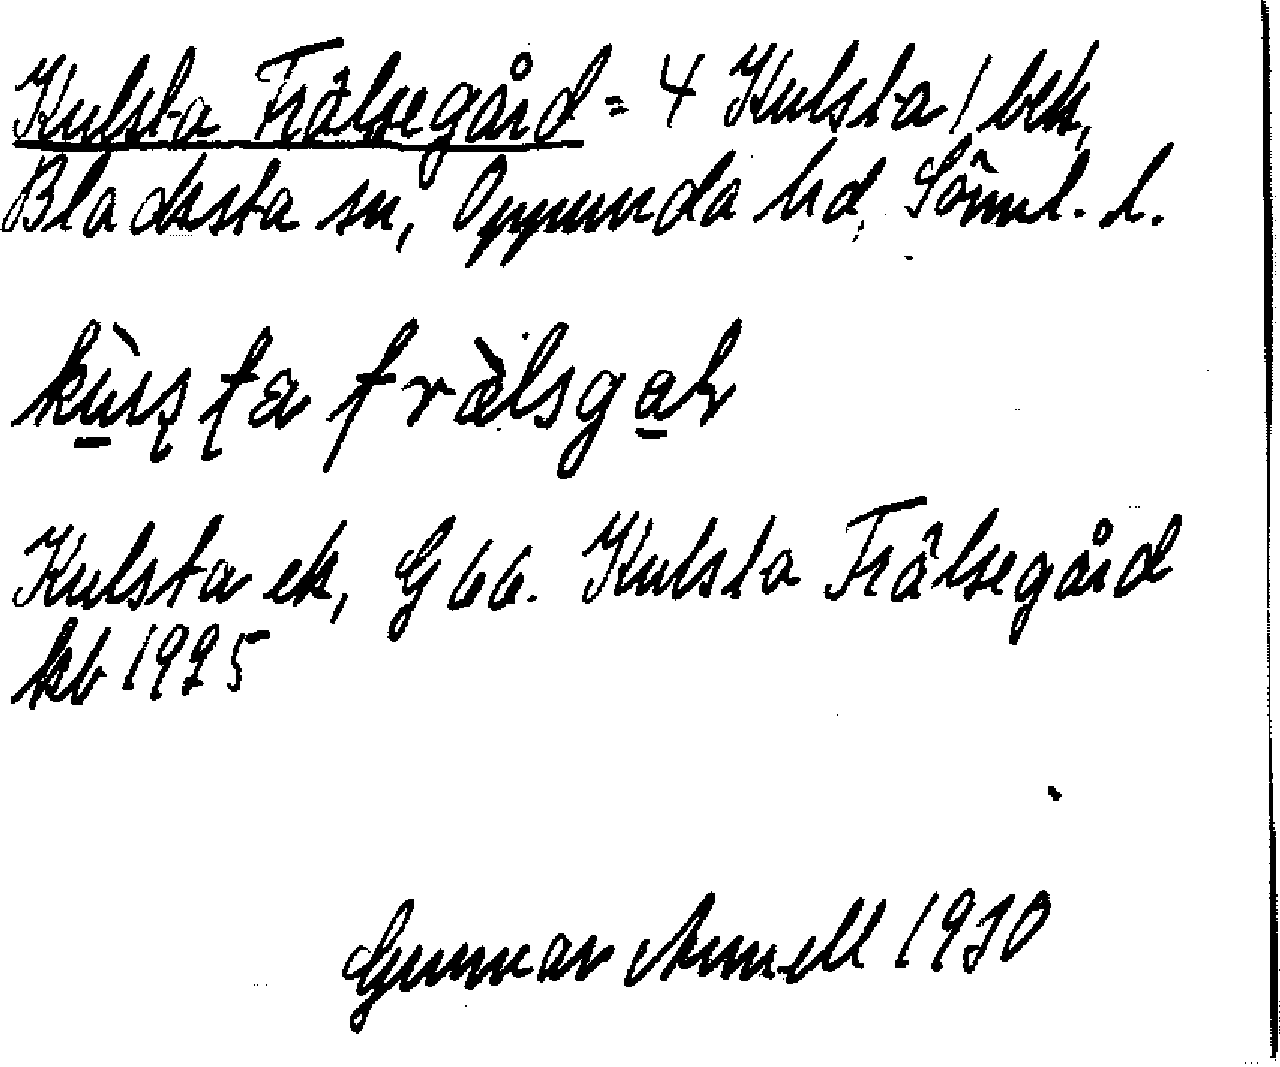 Kulsta Frälsegård = 4 Kulsta 1 bek,
Blacksta sn, Oppunda hd, Söml. l.
kùrsta fràlsgar
Kulsta ek, G 66. Kulsta Frälsegård
kb 1925
Gunnar 1930